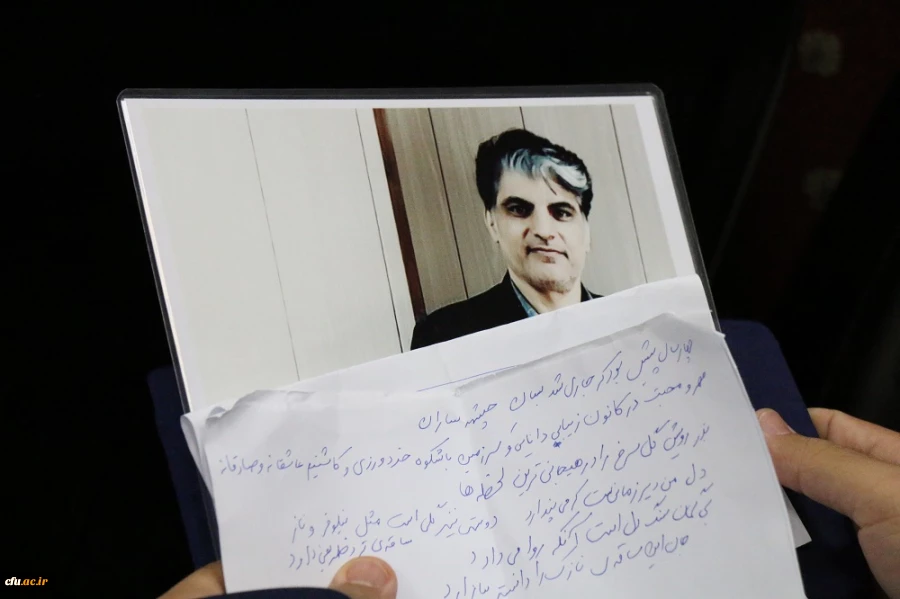 چهار سال پیش بود که جاری شد بسان چشمه ساران
مهر و محبت در کانون زیبایی دانایی و سرزمین باشکوه خردورزی و کاشتیم عاشقانه و صادقانه
بذر رویش گل سرخ را در هیجانی ترین لحظه ها
دل من دیر زمانی است که می پندارد دوستی نیز گلی است مثل نیلوفر و ناز
ساقه ی ترد ظریفی دارد
بی گمان سنگ دل است آنکه روا می دارد
جان این ساقه ی نازک را دانسته بیازارد
cfu.ac.ir